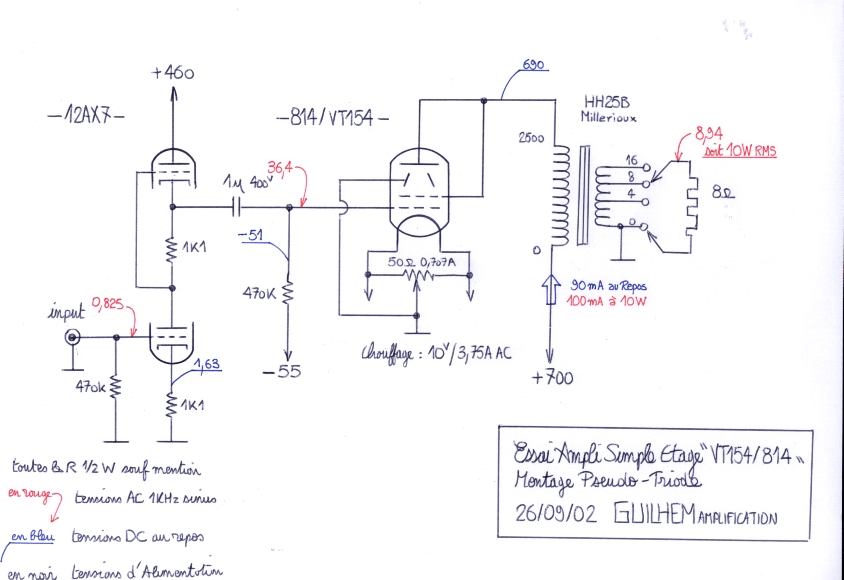 +460
-12AX7-
-814/VT154-
690
HH25B
Millerioux
2500
8,94
soit 10W RMS
16
8
4
0
8Ω
1μ 400V
36,4
1K1
-51
50Ω 0,707A
0
470K
90mA au Repos
100mA à 10W
input
0,825
Chauffage : 10V/3,75A AC
1,63
-55
+700
470K
1K1
toutes les R 1/2 W sauf mention
en rouge tensions AC 1KHz sinus
en bleu tensions DC au repos
en noir tensions d'Alimentation
Essai Ampli Simple Etage "VT154/814"
Montage Pseudo-Triode
26/09/02 GUILHEM AMPLIFICATION